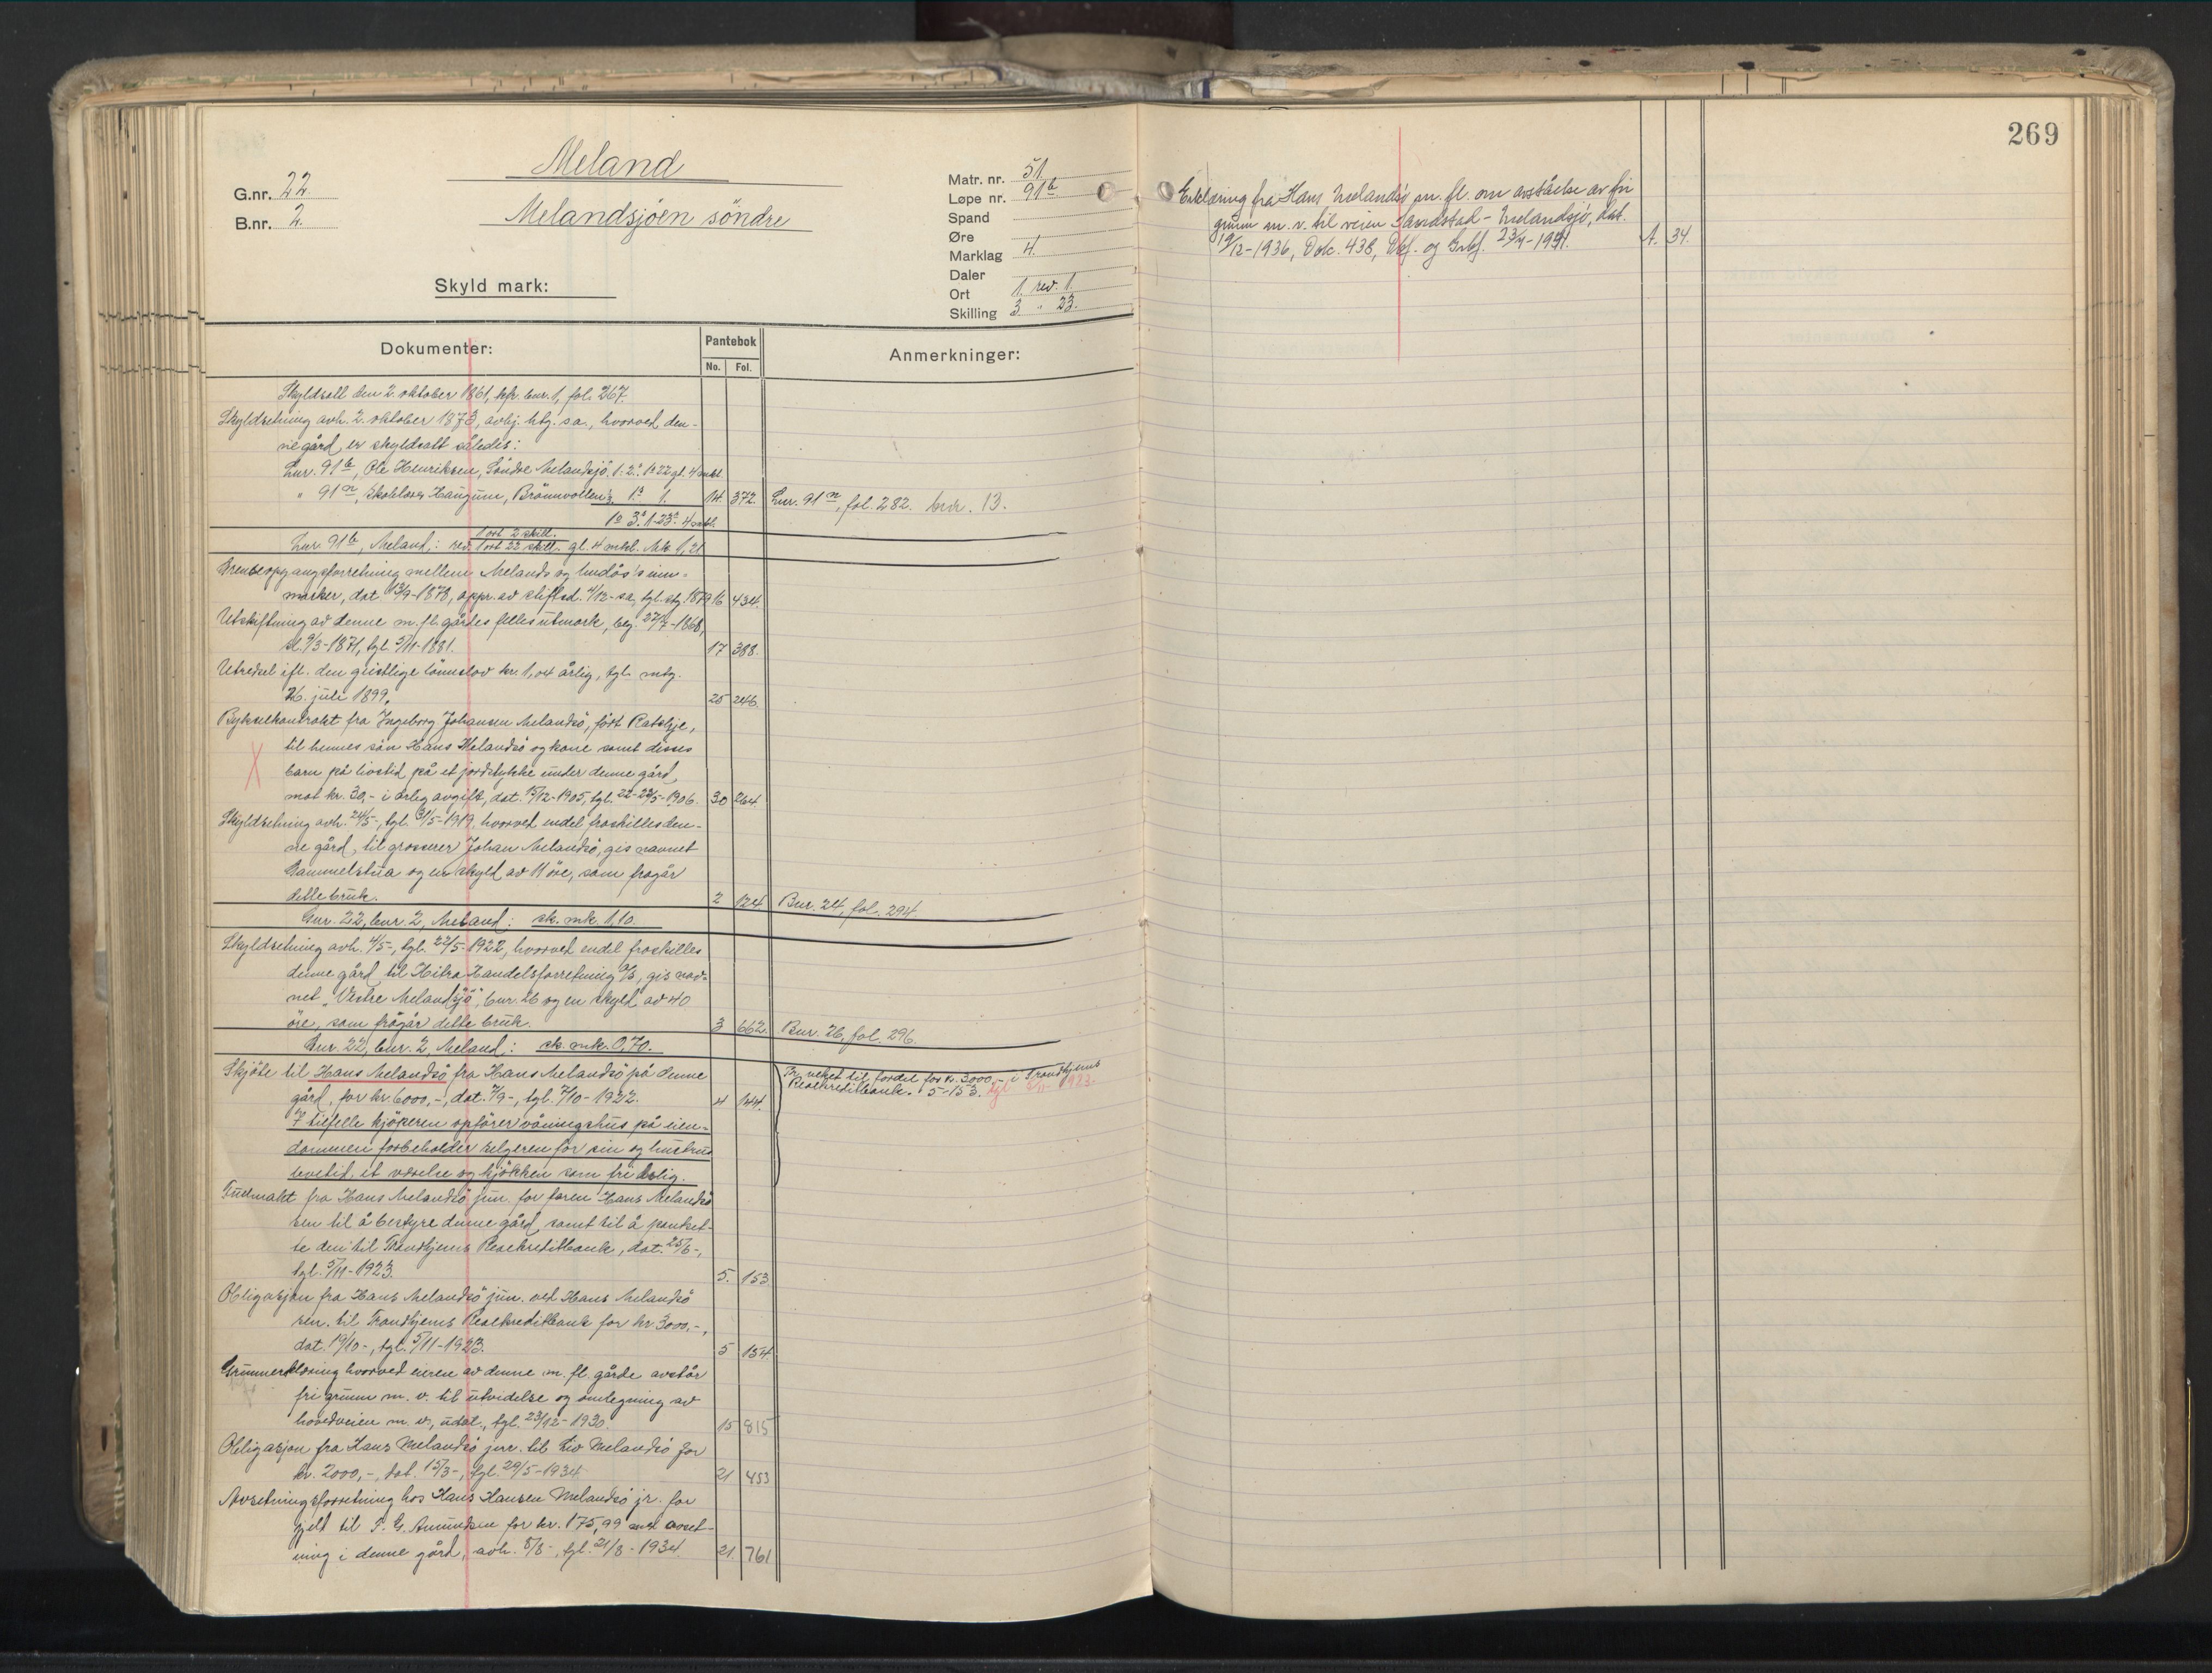 269
Meland
G.nr. 22.
B.nr. 2.
Melandsjöen söndre
Skyld mark:
Matr. nr. 51.
Løpe nr. 91b
Spand
Øre
Marklag 4.
Daler
Ort 1. rev. 1.
Skilling 3. " 23.
Dokumenter:
Pantebok
No. Fol.
Anmerkninger:
Skyldsatt den 2. oktober 1861, kfr. bnr. 1, fol. 267.
Skyldsetning avh. 2. oktober 1873, avhj. htg. s.a., hvorved den-
ne gård er skyldsatt således:
Lnr. 91b, Ole Henriksen, Söndre Melandsjö, 1. 2. 1o 22 gl. 4 mkl.
" 91n, Haugum, Brönnvollen, 1s 1. 14 372. Lnr. 91n, fol. 282. bnr. 13.
1o 3s 1-23s 4 mkl.
Lnr. 91b, Meland,: rev. 1 ort 2 skill. 1 ort 22 skill. gl. 4 mkl. Mk 1,21
Grenseopgangsforretning mellem Melands og inn-
marker, dat. 13/9-1878, appr. av stiftsd. 4/12- s.a., tgl. 1879 16 434.
Utskiftning av denne m. fl. gårdes felles utmark, beg. 27/7-1868,
sl. 9/3-1871, tgl. 5/11-1881. 17 388.
Utredsel ifl. den geistlige lönnslov kr. 1,04 årlig, tgl. mtg.
26. juli 1899. 25 246.
Bykselkontrakt fra Ingeborg Johansen Melandsö, född Ratskje,
til hennes sön Hans Melandsö og kone samt disses
barn på livstid på et jordstykke under denne gård,
mot kr. 30,- i årlig avgift, dat. 15/12-1905, tgl. 22-23/5-1906. 30 264
Skyldsetning avh. 24/5-, tgl. 31/5-1919, hvorved endel fraskilles den-
ne gård, til grosserer Johan Melandsö, gis navnet
Gammelstua og en skyld av 11 öre, som fragår
dette bruk. 2 124 Bnr. 24, fol. 294
Gnr. 22, bnr. 2, Meland: sk. mk. 1,10.
Skyldsetning avh. 4/5-, tgl. 22/5-1922, hvorved endel fraskilles
denne gård til Hitra Handelsforretning A/S, gis nav-
net "Vestre Melandsjö", bnr. 26 og en skyld av 40
öre, som frågår dette bruk. 3 662. Bnr. 26, fol. 296.
Gnr. 22, bnr. 2, Meland,: sk. mk. 0,70.
Skjöte til Hans Melandsö fra Hans Melandsö på denne
gård, for kr. 6000,-, dat. 7/9-, tgl. 7/10-1922. 4 144.
veket til fordel for kr. 3000,- i Trondhjems
Realkreditbank. 5-153. tgl. 5/11-1923.
I tilfelle kjöperen opförer våningshus på eien-
dommen forbeholder selgeren for sin og hustrus
levetid, et værelse og kjökken som fri bolig.
Fullmakt fra Hans Melandsö jun. for faren Hans Melandsö
sen. til å bestyre denne gård samt til å pantset-
te den til Trondhjems Realkreditbank, dat. 25/6-,
tgl. 5/11-1923. 5. 153
Obligasjon fra Hans Melandsö jun. ved Hans Melandsö
sen. til Trondhjems Realkreditbank for kr 3000.-,
dat. 19/10-, tgl. 5/11-1923. 5 154
Grunnerklæring hvorved eieren av denne m. fl. gårde avstår
fri grunn m. v. til utvidelse og omlegning av
hovedveien m. v., udat., tgl. 23/12-1930. 15 815
Obligasjon fra Hans Melandsö jnr. til Liv Melandsö for
kr. 2000,-, dat. 15/3-, tgl. 29/5-1934 21 453
Avsetningsforretning hos Hans Hansen Melandsö jr. for
gjeld til P. G. Amundsen for kr. 175,99 med avset-
ning i denne gård, avh. 8/8-, tgl. 21/8-1934. 21 761
Erklæring fra Hans Melandsö m. fl. om avståelse av fri
grunn m. v. til veien Sandstad - Melandsjö, dat.
19/12-1936, Dok. 438, Dbf. og Gnbf. 23/4-1941. A. 34.